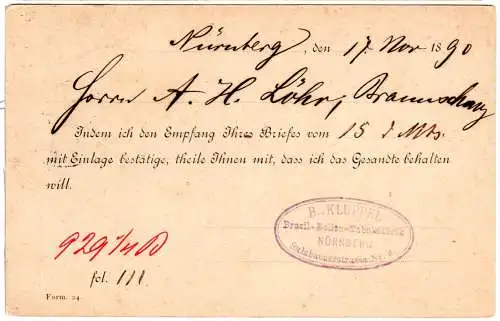 Nürnberg, den 17. Nov 1890
Herrn A. H. Löhr, Braunschwg
Indem ich den Empfang Ihres Briefes vom 15 d Mts.
mit Einlage bestätige, theile Ihnen mit, dass ich das Gesandte behalten
will.
B. KLÜPFEL
NÜRNBERG
929/4 B
fol. 111
Form. 24